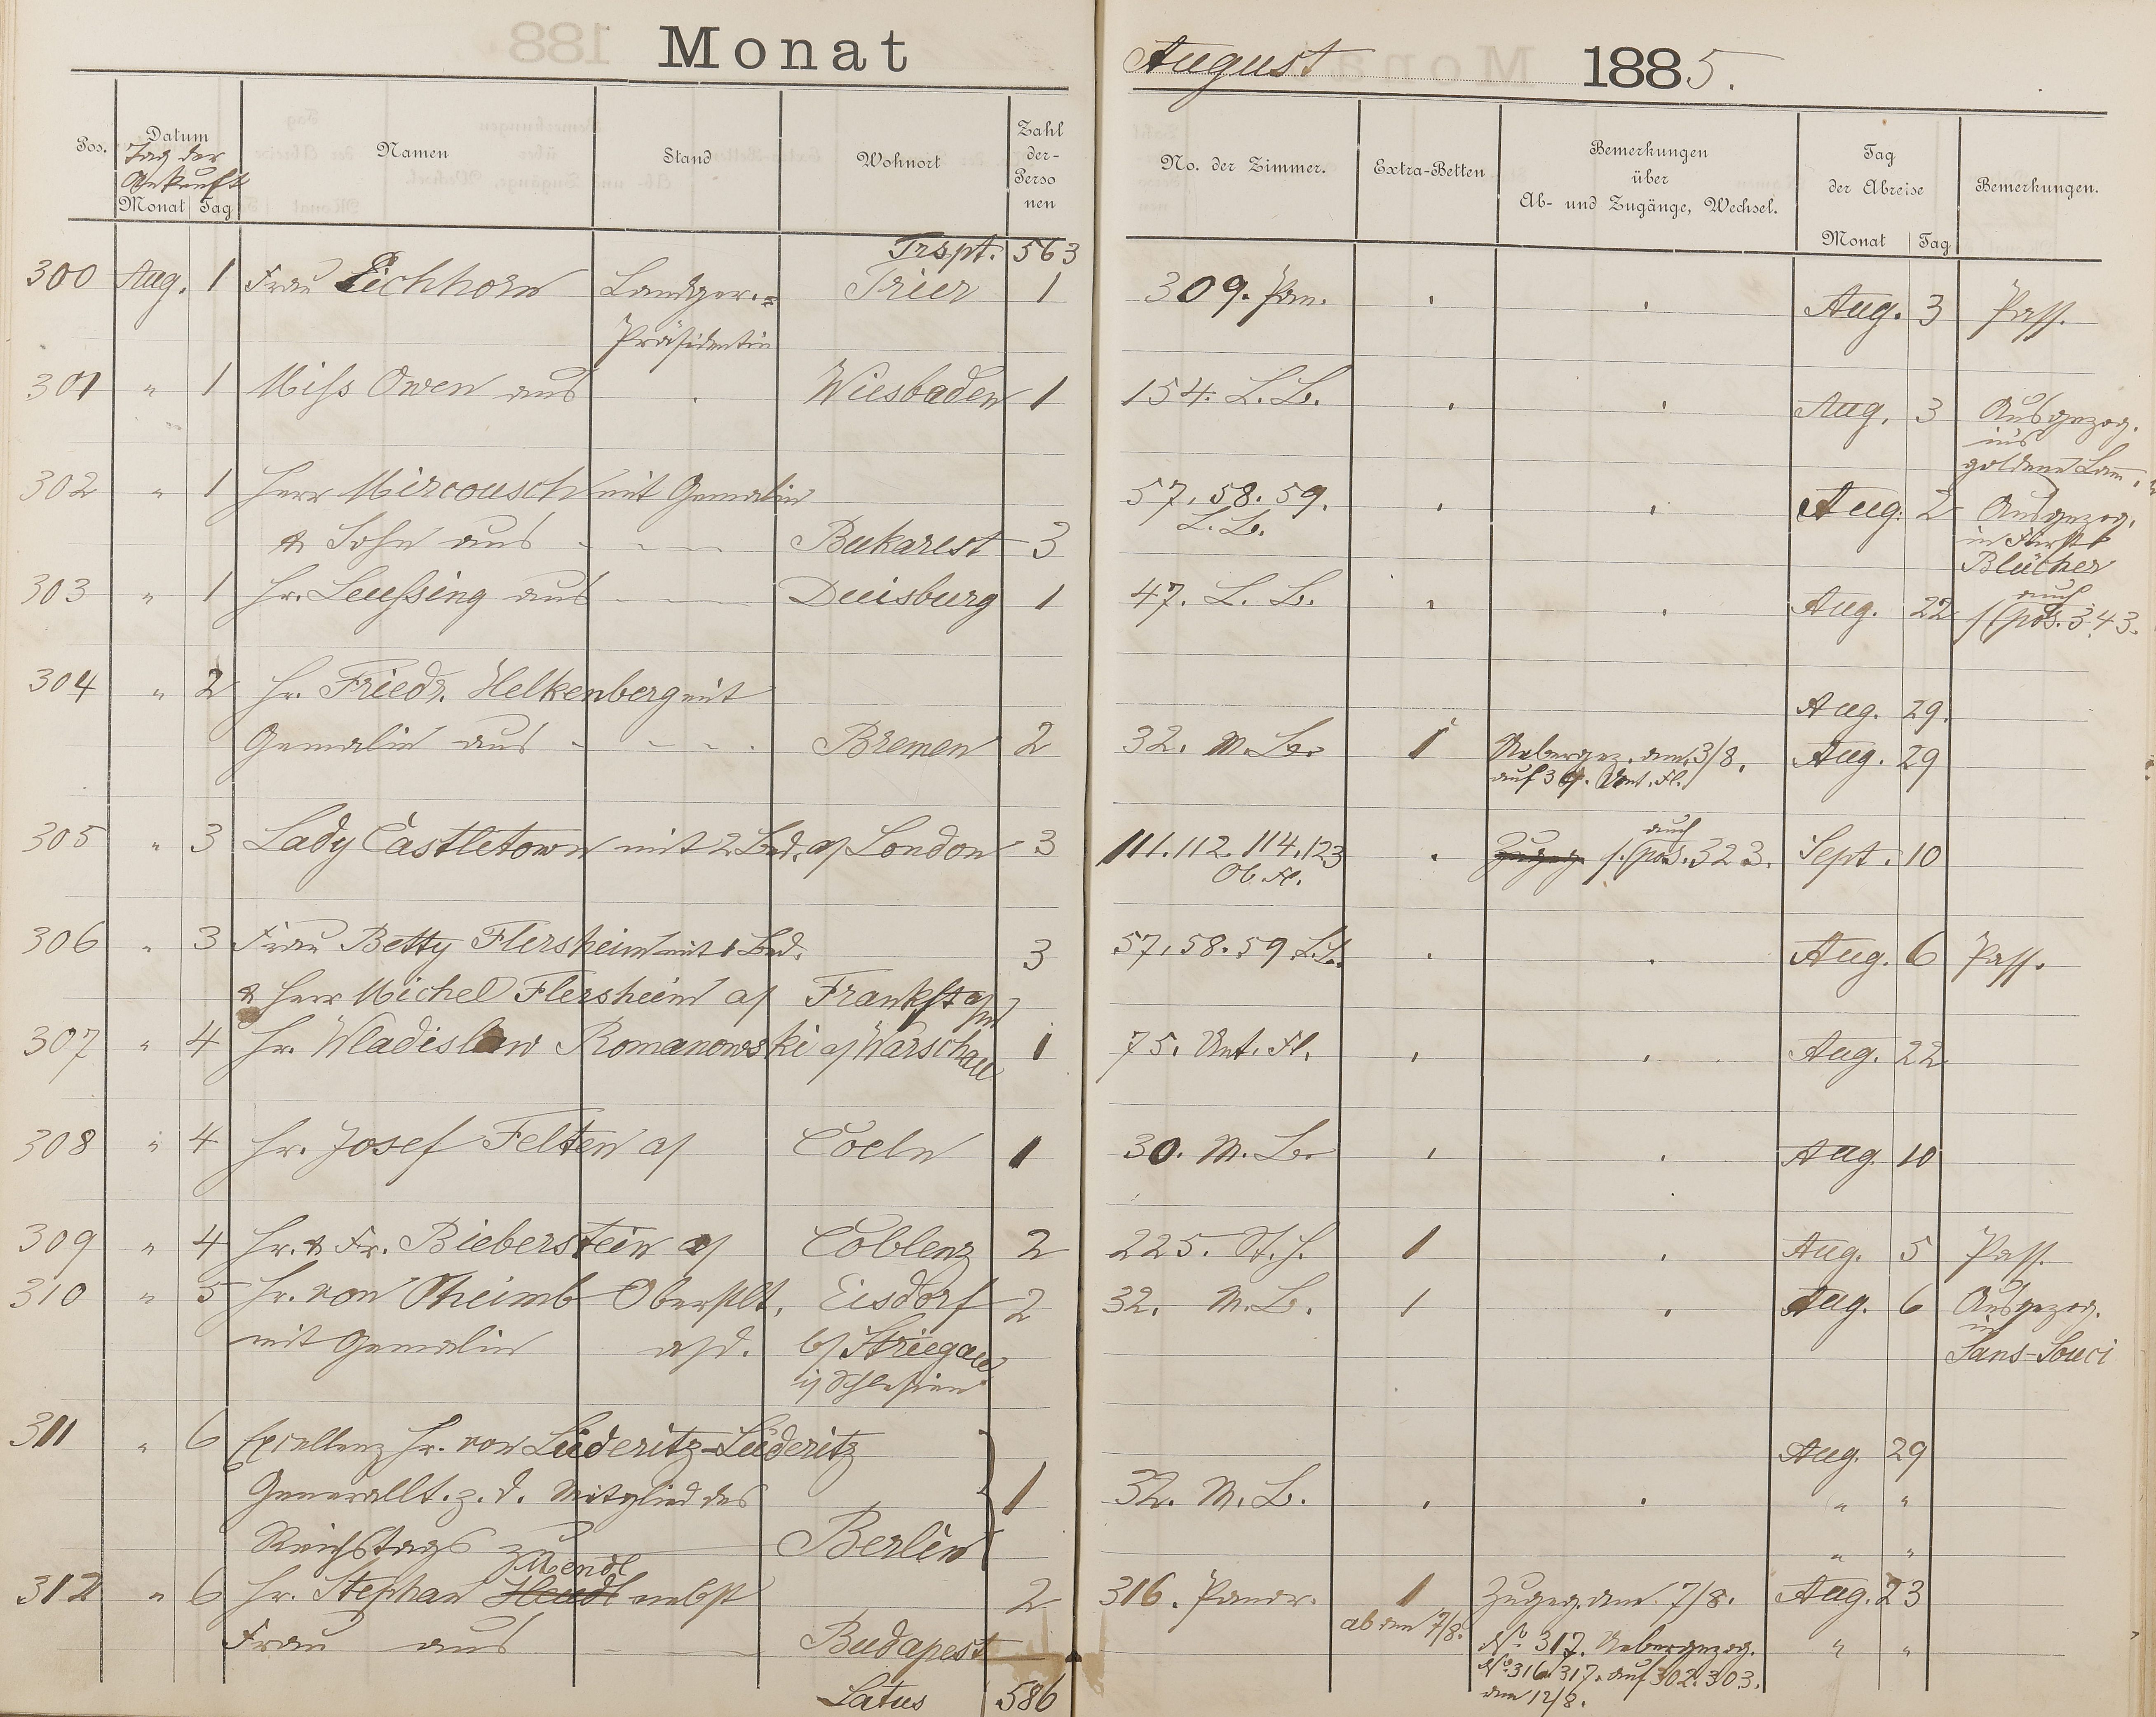 Monat August 1885.
Pos. Datum Namen Stand Wohnort Zahl der Personen No. der Zimmer. Extra-Betten Bemerkungen über Ab- und Zugänge, Wechsel. Tag der Abreise Bemerkungen.
Tag der Ankunft
Monat Tag Monat Tag
Trspt. 563
300 Aug. 1 Frau Eichhorn Landger.= Trier 1 309. Pan. Aug. 3 Pass.
Präsidentin
301 " 1 Miss Owen aus Wiesbaden 1 154. L. B. Aug. 3 Ausgezog.
ins
goldene Lam.
302 " 1 Herr Mircousch mit Gemalin 57. 58. 59. Aug. 2 Ausgezog.
& Sohn aus - - - Bukarest 3 L. B. in Fürst
Blücher
303 " 1 Hr. Leussing aus - - - Duisburg 1 47. L. B. Aug. 22 s/ auch pos. 343.
304 " 2 Hr. Friedr. Helkenberg mit Aug. 29.
Gemalin aus - - - Bremen 2 32. M. B. 1 Uebergez. am 3/8. Aug. 29
auf 39. Unt. Fl.
305 " 3 Lady Castletown mit 2 Bed. a/ London 3 111. 112. 114. 123 s. auch pos. 323. Sept. 10
Ob. Fl.
306 " 3 Frau Betty Flersheim mit 1 Bed. 3 57. 58. 59 L. B. Aug. 6 Pass.
& Herr Michel Flersheim a/ Frankft a/M
307 " 4 Hr. Wladislaw Romanowski a/ Warschau 1 75. Unt. Fl. Aug. 22
308 " 4 Hr. Josef Felten a/ Coeln 1 30. M. B. Aug. 10
309 " 4 Hr. & Fr. Bieberstein a/ Coblenz 2 225. St. H. 1 Aug. 5 Pass.
310 " 5 Hr. von Oheimb Oberstlt. Eisdorf 2 32. M. B. 1 Aug. 6 Ausgezog.
mit Gemalin a/d. b/ Striegau in
i/ Schlesien Sans-Souci
311 " 6 Excellenz Hr. von Lüderitz-Lüderitz Aug. 29
Generallt. z. d. Mitglied des 1 32. M. B. " "
Reichstags zu Berlin " "
Mendl
312 " 6 Hr. Stephan Hendl nebst 2 316. Panor. 1 Zugeg. am 7/8. Aug. 23
Frau aus - - Budapest ab den 7/8. No. 317. Uebergezog. " "
No. 316. 317. auf 302. 303.
am 12/8.
Latus 586